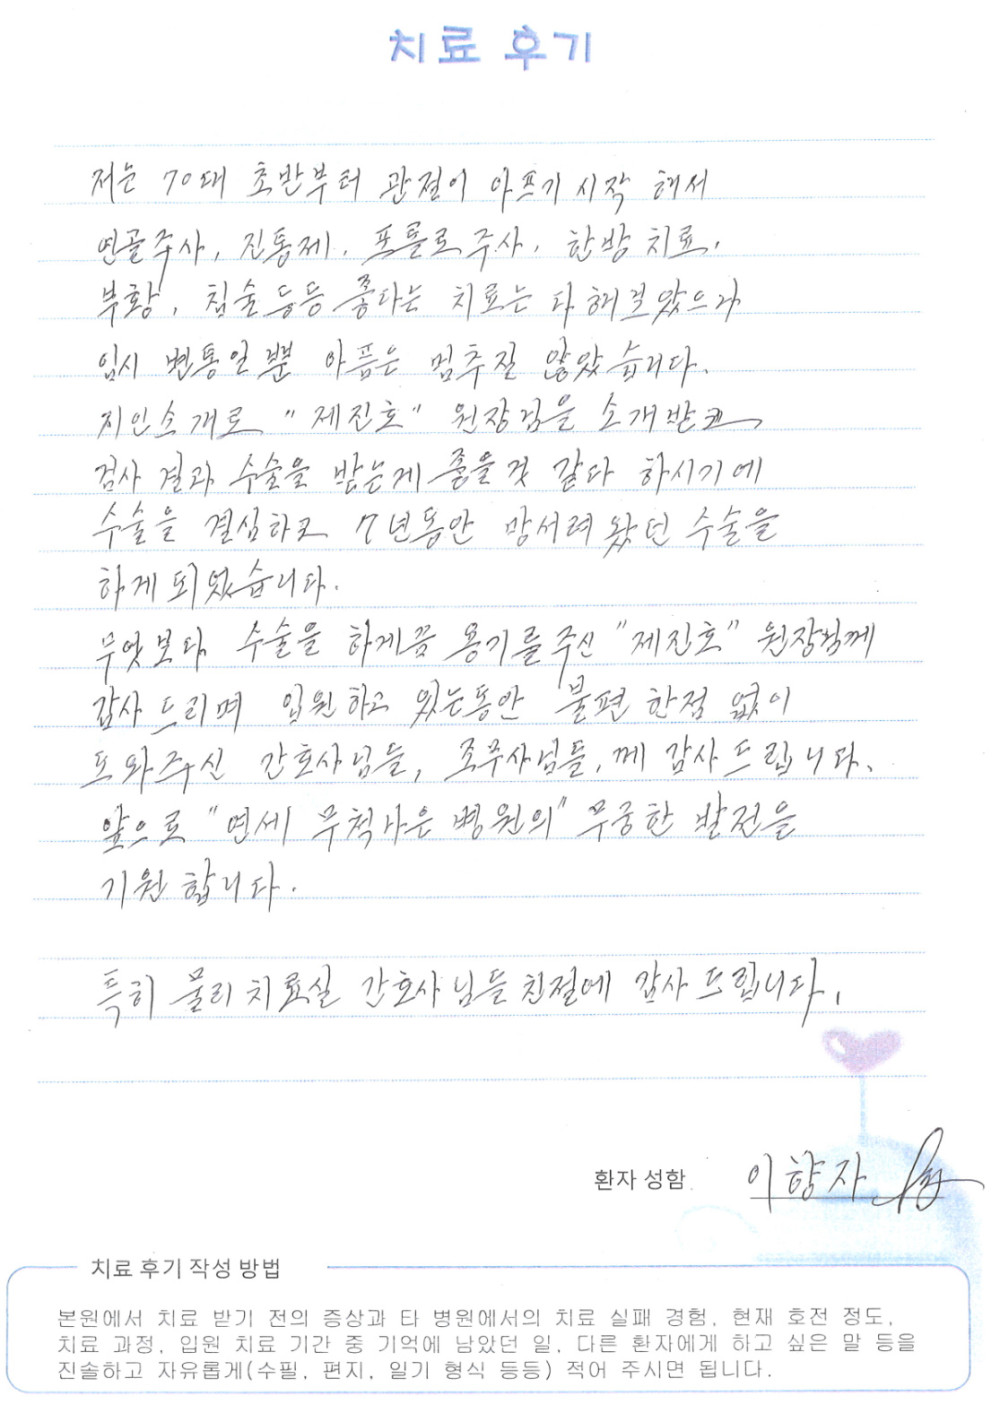 치료 후기
저는 70대 초반부터 관절이 아프기 시작 해서
연골주사, 진통제, 프롤로주사, 한방치료,
부황, 침술등등 좋다는 치료는 다 해보았으나
임시 변통일뿐 아픔은 멈추질 않았습니다.
지인소개로 "제진호" 원장님을 소개받고
검사 결과 수술을 받는게 좋을것 같다 하시기에
수술을 결심하고 7년동안 망서려 왔던 수술을
하게 되었습니다.
무엇보다 수술을 하게끔 용기를 주신 "제진호" 원장님께
감사 드리며 입원하고 있는동안 불편 한점 없이
도와주신 간호사님들, 조무사님들,께 감사드립니다.
앞으로 "연세 무척나은 병원의" 무궁한 발전을
기원 합니다.
특히 물리치료실 간호사님들 친절에 감사드립니다.
환자 성함 이향자
치료 후기 작성 방법
본원에서 치료 받기 전의 증상과 타 병원에서의 치료 실패 경험, 현재 호전 정도,
치료 과정, 입원 치료 기간 중 기억에 남았던 일, 다른 환자에게 하고 싶은 말 등을
진솔하고 자유롭게(수필, 편지, 일기 형식 등등) 적어 주시면 됩니다.